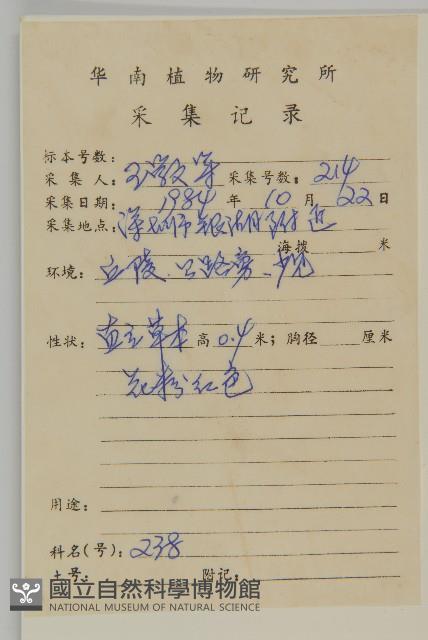 华南植物研究所
采集记录
标本号数:
采集人: 王学文等 采集号数: 214
采集日期: 1984 年 10 月 22 日
采集地点: 深圳市银湖附近
海拨 米
环境: 丘陵.公路旁.少见
性状: 直立草本 高 0.4 米; 胸径 厘米
花粉红色
用途:
科名(号): 238
土号: 附记:
國立自然科學博物館
NATIONAL MUSEUM OF NATURAL SCIENCE